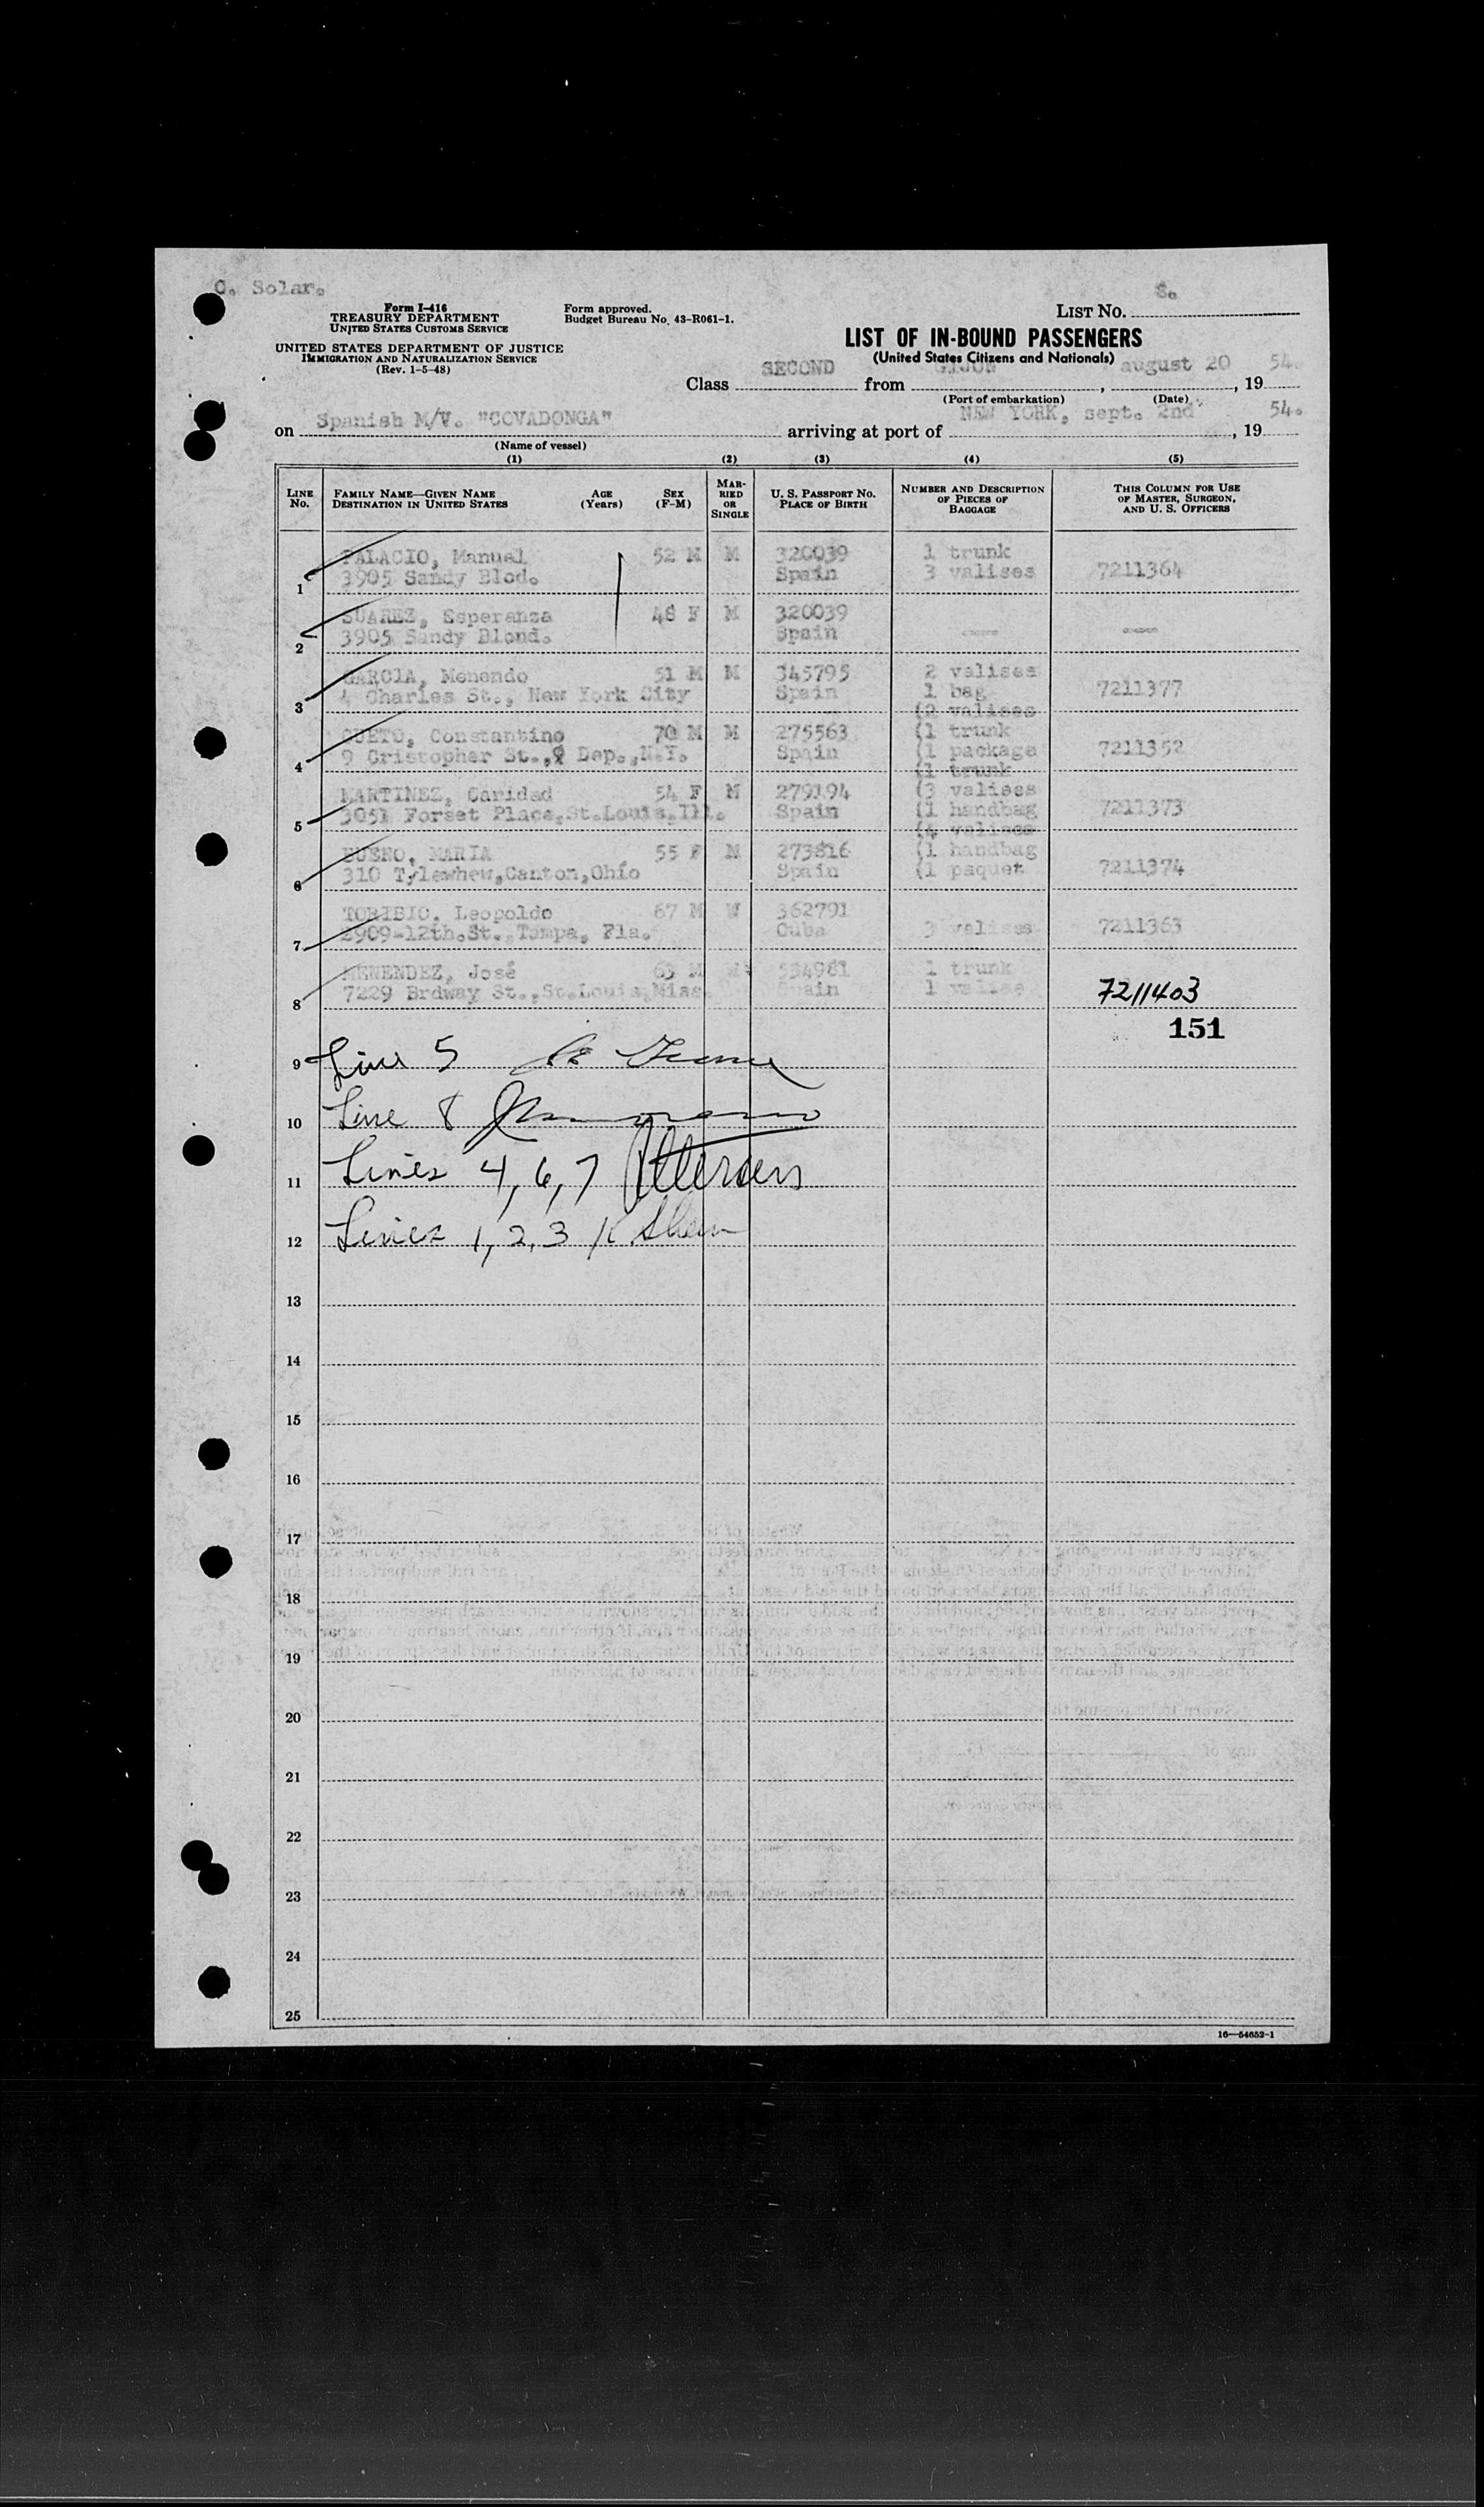 C. Solar.
8.
Form I-416
TREASURY DEPARTMENT
UNITED STATES CUSTOMS SERVICE
Form approved.
Budget Bureau No. 43-R061-1.
LIST NO.
UNITED STATES DEPARTMENT OF JUSTICE
IMMIGRATION AND NATURALIZATION SERVICE
(Rev. 1-5-48)
LIST OF IN-BOUND PASSENGERS
(United States Citizens and Nationals)
Class SECOND from GIJON, august 20, 19 54.
(Port of embarkation) (Date)
on Spanish M/V. "COVADONGA" arriving at port of NEW YORK, sept. 2nd, 19 54.
(Name of vessel)
(1) (2) (3) (4) (5)
LINE NO. FAMILY NAME—GIVEN NAME DESTINATION IN UNITED STATES AGE (Years) SEX (F-M) MARRIED OR SINGLE U. S. PASSPORT NO. PLACE OF BIRTH NUMBER AND DESCRIPTION OF PIECES OF BAGGAGE THIS COLUMN FOR USE OF MASTER, SURGEON, AND U. S. OFFICERS
PALACIO, Manuel 52 M M 320039 1 trunk
1 3905 Sandy Blod. Spain 3 valises 7211364
SUAREZ, Esperanza 48 F M 320039
2 3905 Sandy Blond. Spain
GARCIA, Menendo 51 M M 345795 2 valises
3 4 Charles St., New York City Spain 1 bag 7211377
(2 valises
CUETO, Constantino 70 M M 275563 (1 trunk
4 9 Cristopher St.,9 Dep.,N.Y. Spain (1 package 7211352
(1 trunk
MARTINEZ, Caridad 54 F M 279194 (3 valises
5 3051 Forset Place,St.Louis,Ill. Spain (1 handbag 7211373
(4 valises
BUENO, MARIA 55 F M 273816 (1 handbag
6 310 Tylewhew,Canton,Ohío Spain (1 paquet 7211374
TORIBIO, Leopoldo 67 M W 362791
7 2909-12th.St. Tampa, Fla. Cuba 3 valises 7211363
MENENDEZ, José 63 M W 534981 1 trunk
8 7229 Brdway St.,St.Louis,Miss. Spain 1 valise 7211403
151
9 Line 5
10 Line 8
11 Lines 4, 6, 7
12 Lines 1, 2, 3
13
14
15
16
17
18
19
20
21
22
23
24
25
16—54652-1